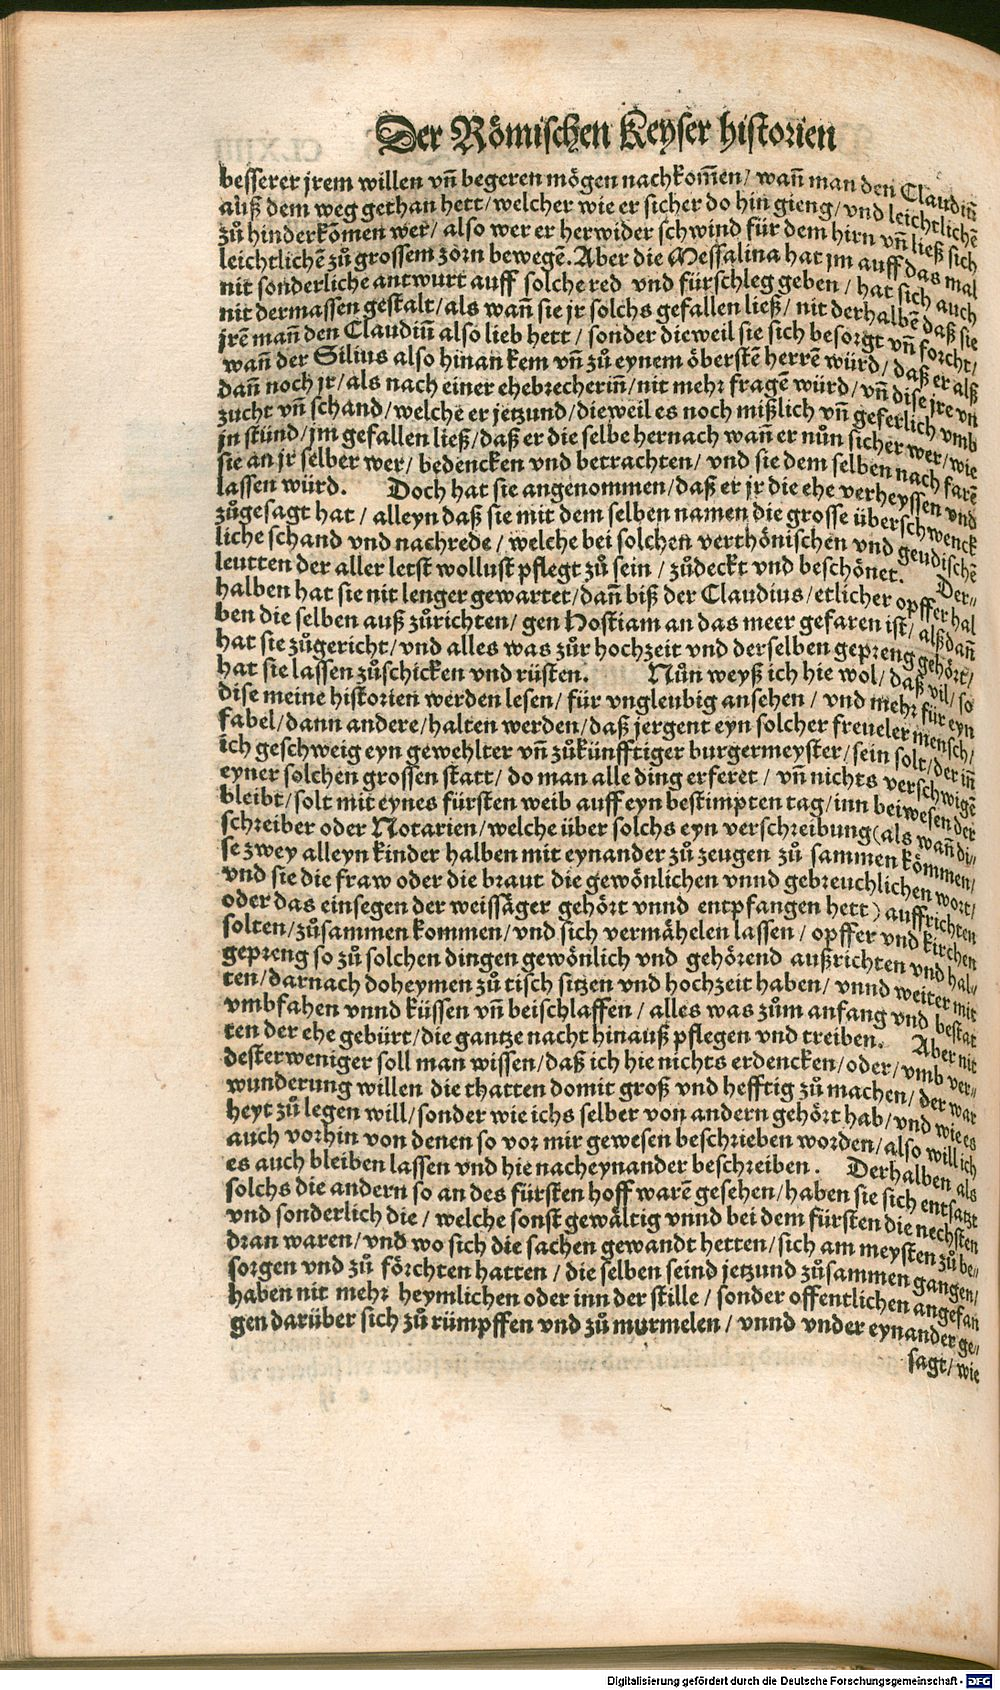 Der Römischen Keyser historien
besserer jrem willen vn̄ begeren mögen nachkom̄en/ wan̄ man den Claudiū
auß dem weg gethan hett/ welcher wie er sicher do hin gieng/ vnd leichtlichē
zů hinderkōmen wer/ also wer er herwider schwind für dem hirn vn̄ ließ sich
leichtlichē zů grossem zorn bewegē. Aber die Messalina hat jm auff das mal
nit sonderliche antwurt auff solche red vnd fürschleg geben/ hat sich auch
nit dermassen gestalt/ als wan̄ sie jr solchs gefallen ließ/ nit derhalbē daß sie
jrē man̄ den Claudiū also lieb hett/ sonder dieweil sie sich besorgt vn̄ forcht/
wan̄ der Silius also hinan kem vn̄ zů eynem öberstē herrē würd/ daß er alß
dan̄ noch jr/ als nach einer ehebrecherin̄/ nit mehr fragē würd/ vn̄ dise jre vn
zucht vn̄ schand/ welche er jetzund/ dieweil es noch mißlich vn̄ geferlich vmb
jn stünd/ jm gefallen ließ/ daß er die selbe hernach wan̄ er nůn sicher wer/ wie
sie an jr selber wer/ bedencken vnd betrachten/ vnd sie dem selben nach farē
lassen würd. Doch hat sie angenommen/ daß er jr die ehe verheyssen vnd
zůgesagt hat/ alleyn daß sie mit dem selben namen die grosse überschwenck
liche schand vnd nachrede/ welche bei solchen verthönischen vnd geudischē
leutten der aller letst wollust pflegt zů sein/ zůdeckt vnd beschönet. Der-
halben hat sie nit lenger gewartet/ dan̄ biß der Claudius/ etlicher opffer hal
ben die selben auß zůrichten/ gen Hostiam an das meer gefaren ist/ alßdan̄
hat sie zůgericht/ vnd alles was zůr hochzeit vnd derselben gepreng gehört/
hat sie lassen zůschicken vnd rüsten. Nůn weyß ich hie wol/ daß vil/ so
dise meine historien werden lesen/ für vngleubig ansehen/ vnd mehr für eyn
fabel/ dann andere/ halten werden/ daß jergent eyn solcher freueler mensch/
ich geschweig eyn gewehlter vn̄ zůkünfftiger burgermeyster/ sein solt/ der in̄
eyner solchen grossen statt/ do man alle ding erferet/ vn̄ nichts verschwigē
bleibt/ solt mit eynes fürsten weib auff eyn bestimpten tag/ inn beiwesen der
schreiber oder Notarien/ welche über solchs eyn verschreibung (als wan̄ di-
se zwey alleyn kinder halben mit eynander zů zeugen zů sammen kömmen/
vnd sie die fraw oder die braut die gewönlichen vnnd gebreuchlichen wort/
oder das einsegen der weissäger gehört vnnd entpfangen hett) auffrichten
solten/ zůsammen kommen/ vnd sich vermähelen lassen/ opffer vnd kirchen
gepreng so zů solchen dingen gewönlich vnd gehörend außrichten vnd hal-
ten/ darnach doheymen zů tisch sitzen vnd hochzeit haben/ vnnd weiter mit
vmbfahen vnnd küssen vn̄ beischlaffen/ alles was zům anfang vnd bestat
ten der ehe gebürt/ die gantze nacht hinauß pflegen vnd treiben. Aber nit
desterweniger soll man wissen/ daß ich hie nichts erdencken/ oder/ vmb ver-
wunderung willen die thatten domit groß vnd hefftig zů machen/ der war
heyt zů legen will/ sonder wie ichs selber von andern gehört hab/ vnd wie es
auch vorhin von denen so vor mir gewesen beschrieben worden/ also will ich
es auch bleiben lassen vnd hie nacheynander beschreiben. Derhalben als
solchs die andern so an des fürsten hoff warē gesehen/ haben sie sich entsatzt
vnd sonderlich die/ welche sonst gewältig vnnd bei dem fürsten die nechsten
dran waren/ vnd wo sich die sachen gewandt hetten/ sich am meysten zů be-
sorgen vnd zů förchten hatten/ die selben seind jetzund zůsammen gangen/
haben nit mehr heymlichen oder inn der stille/ sonder offentlichen angefan
gen darüber sich zů rümpffen vnd zů murmelen/ vnnd vnder eynander ge-
sagt/ wie
Digitalisierung gefördert durch die Deutsche Forschungsgemeinschaft - DFG